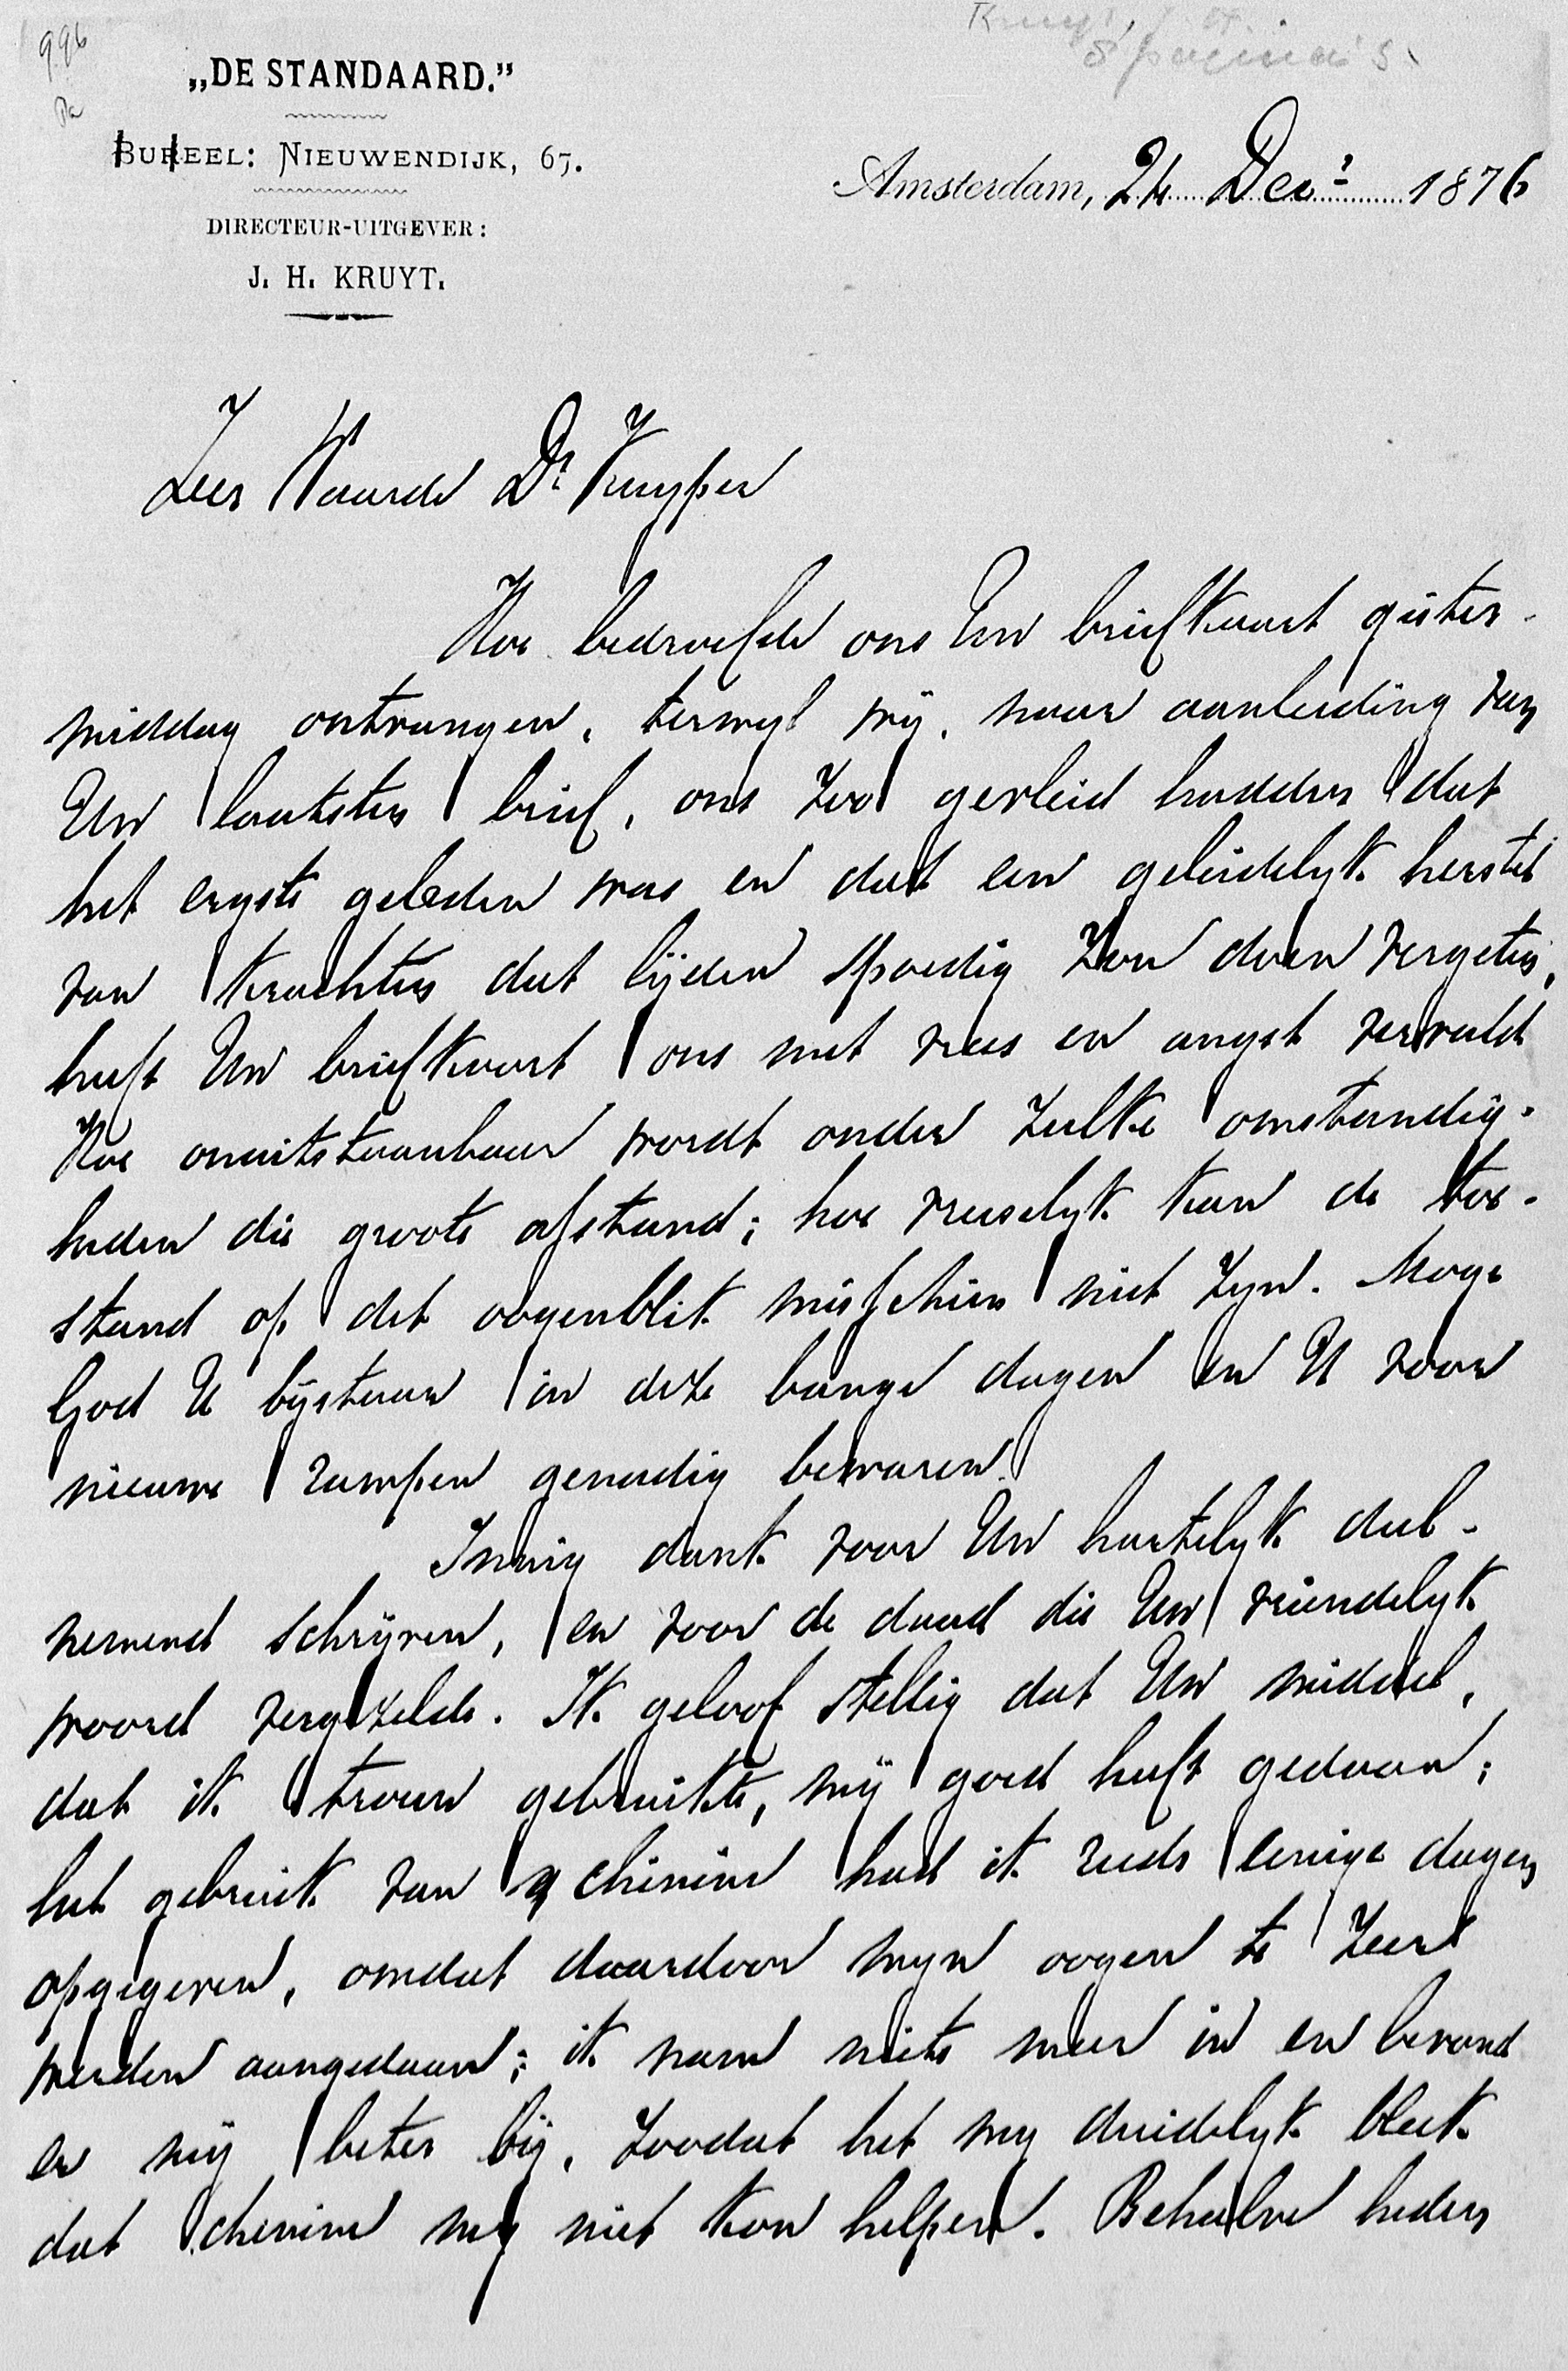 996
Pa
8 pagina's.
„DE STANDAARD."
BUREEL: NIEUWENDIJK, 67.
Amsterdam, 24 Decr 1876
DIRECTEUR-UITGEVER:
J. H. KRUYT.
Zeer Waarde Dr Kuyper
Hoe bedroefde ons Uw briefkaart gister-
middag ontvangen, terwyl wij, naar aanleiding van
Uw laatsten brief, ons zoo gevleid hadden dat
het ergste geleden was en dat een geleidelyk herstel
van krachten dat lijden spoedig zou doen vergeten,
heeft Uw briefkaart ons met vrees en angst vervuld
Hoe onuitstaanbaar wordt onder zulke omstandig-
heden die groote afstand; hoe vreeselyk kan de toe-
stand op dit oogenblik misschien niet zyn. Moge
God U bijstaan in deze bange dagen en U voor
nieuwe rampen genadig bewaren.
Innig dank voor Uw hartelyk deel-
nemend schrijven, en voor de daad die Uw vriendelyk
woord vergezelde. Ik geloof stellig dat Uw middel,
dat ik trouw gebruikte, mij goed heeft gedaan;
het gebruik van chinine had ik reeds eenige dagen
opgegeven, omdat daardoor myn oogen te zeer
werden aangedaan; ik nam niets meer in en bevond
er mij beter bij, zoodat het my duidelyk bleek
dat chinine my niet kon helpen. Behalve heden